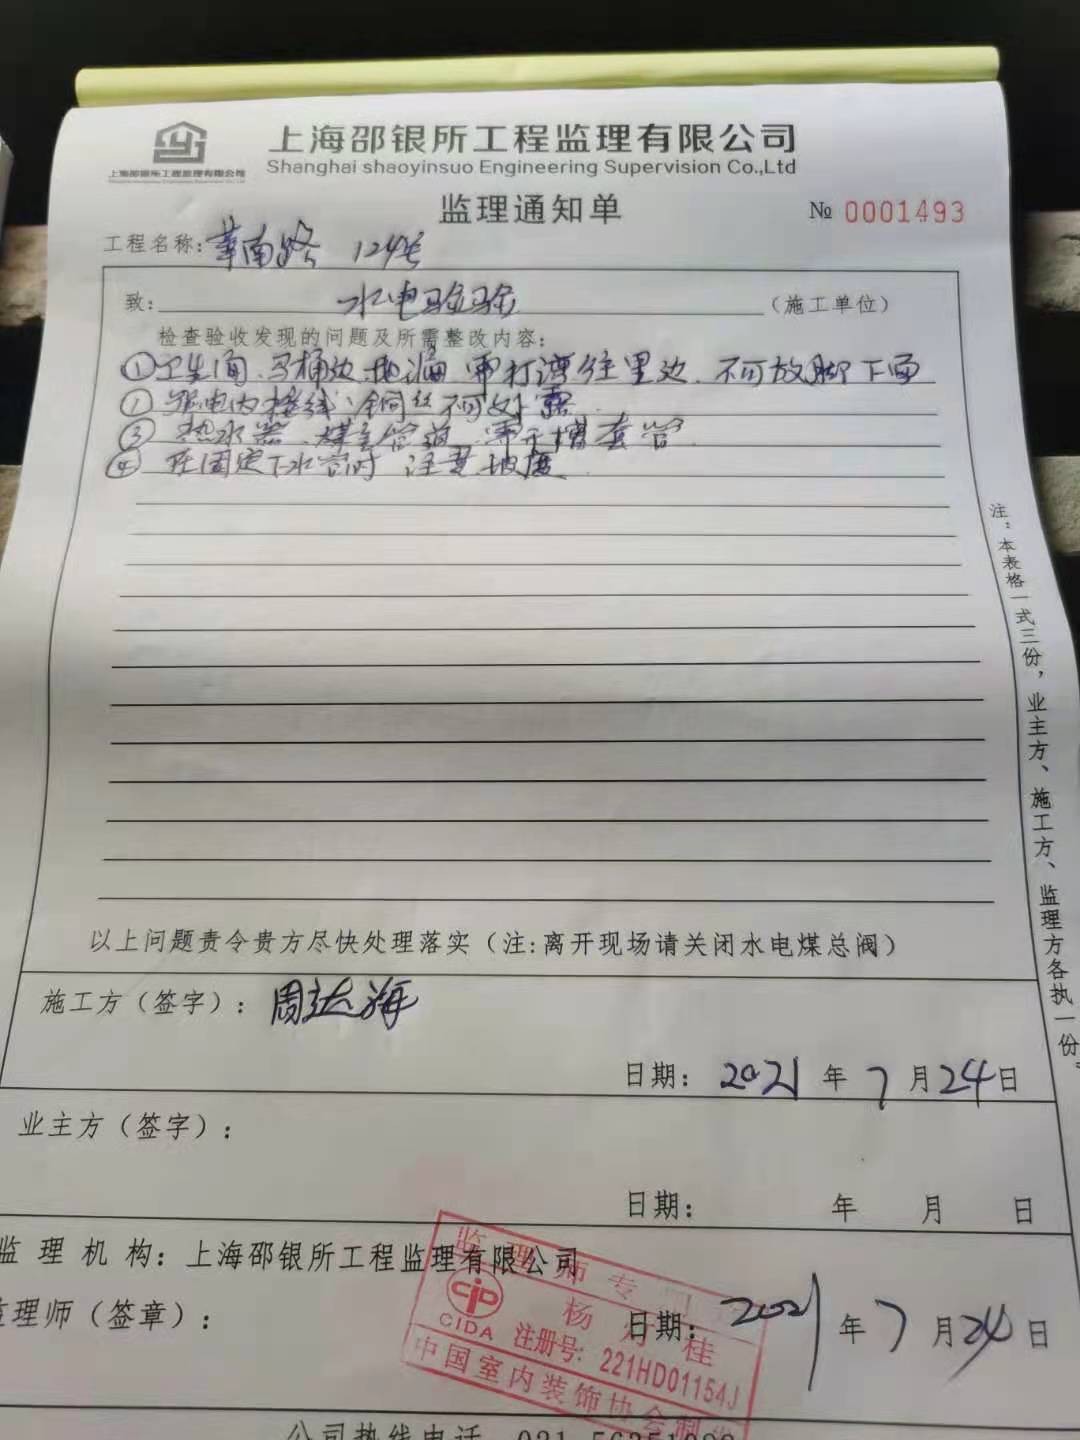 上海邵银所工程监理有限公司
Shanghai shaoyinsuo Engineering Supervision Co.,Ltd
上海邵银所工程监理有限公司
监理通知单
№ 0001493
工程名称: 莘南路 124号
致: 水电验验 (施工单位)
检查验收发现的问题及所需整改内容:
①卫生间,马桶边地漏 需打漕往里边,不可放脚下面
① 强电内接线,铜丝不可外露.
③ 热水器,煤气管道,需开槽套管
④ 在固定下水管时 注意坡度.
以上问题责令贵方尽快处理落实(注:离开现场请关闭水电煤总阀)
注:本表格一式三份,业主方、施工方、监理方各执一份。
施工方(签字): 周达海
日期: 2021 年 7 月 24 日
业主方(签字):
日期: 年 月 日
监 理 机 构: 上海邵银所工程监理有限公司
监理师(签章):
日期: 2021 年 7 月 24 日
监理师专
杨 桂
CIDA 注册号: 221HD01154J
中国室内装饰协会制
公司热线电话 021-56351